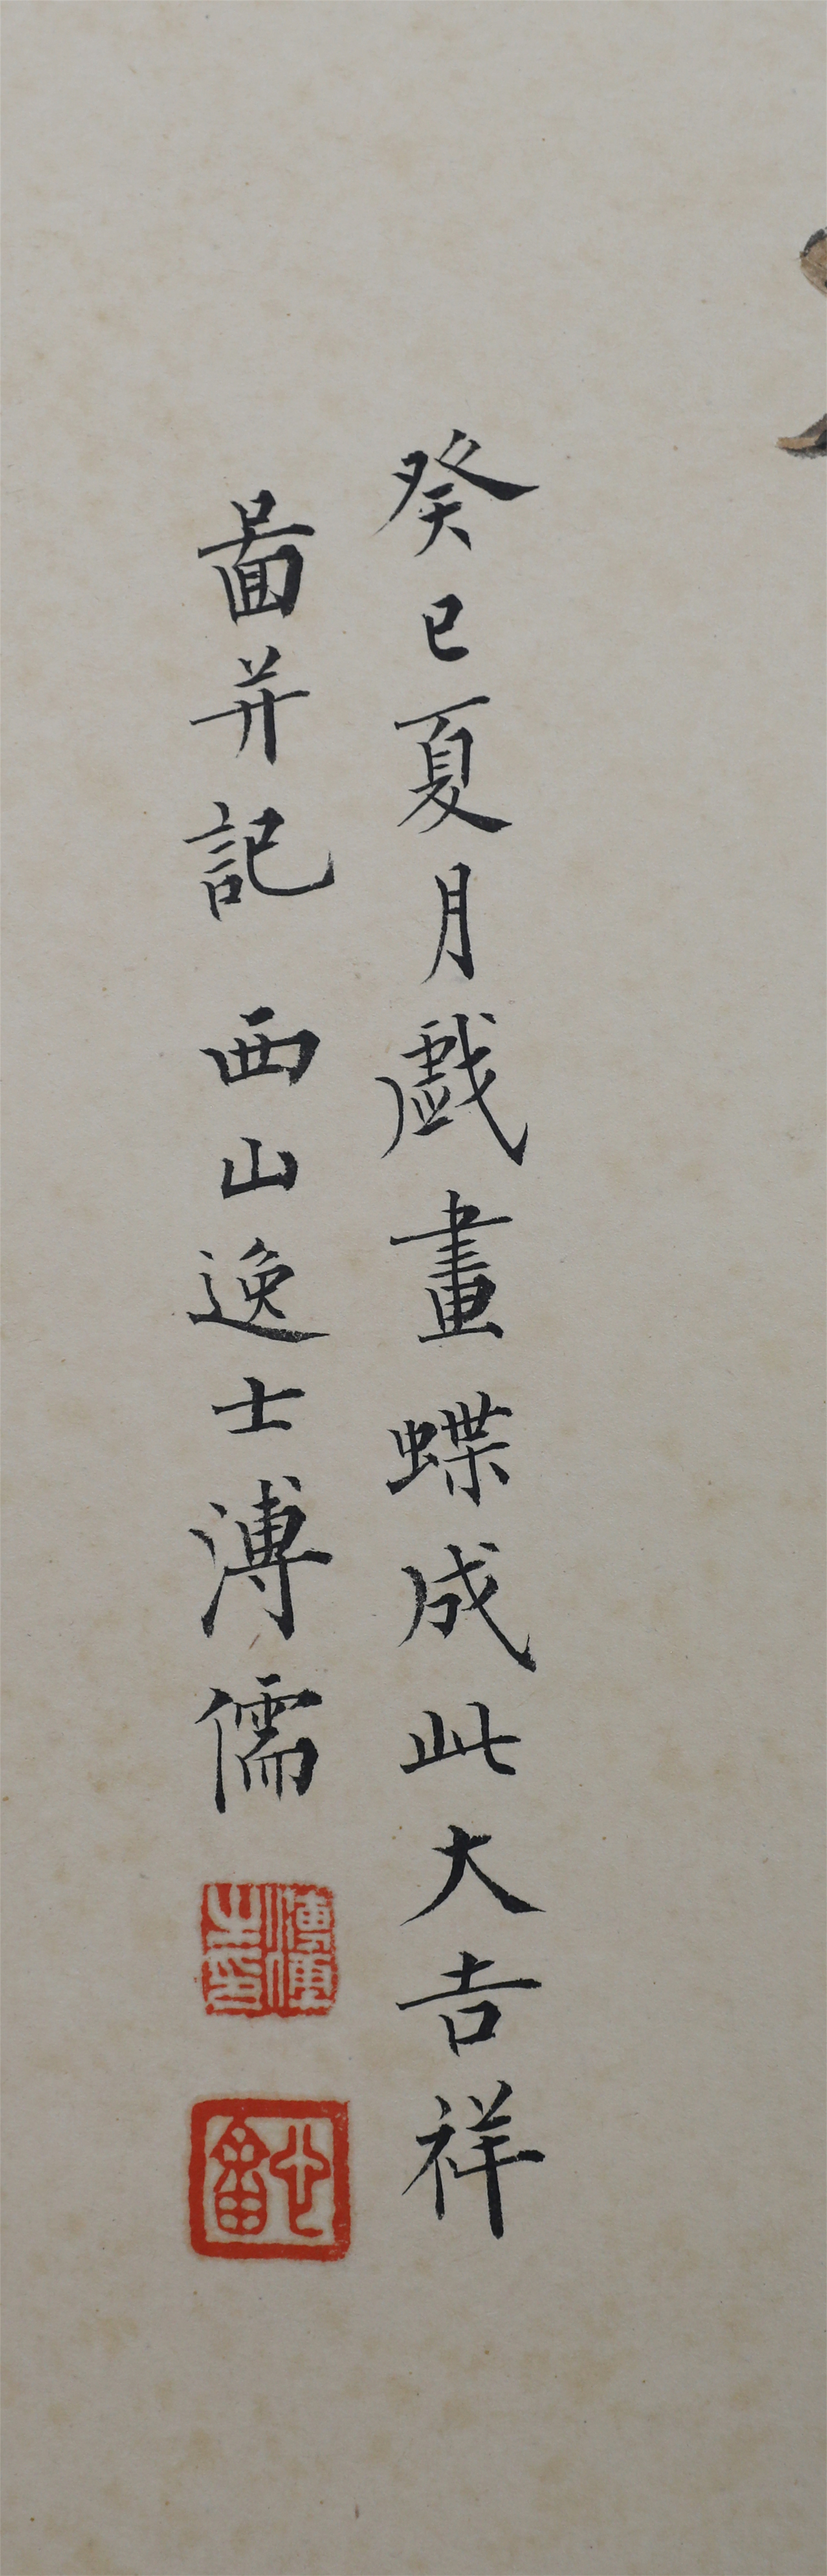 癸巳夏月戲畫蝶成此大吉祥
啚并記 西山逸士溥儒
溥儒之印
心畬